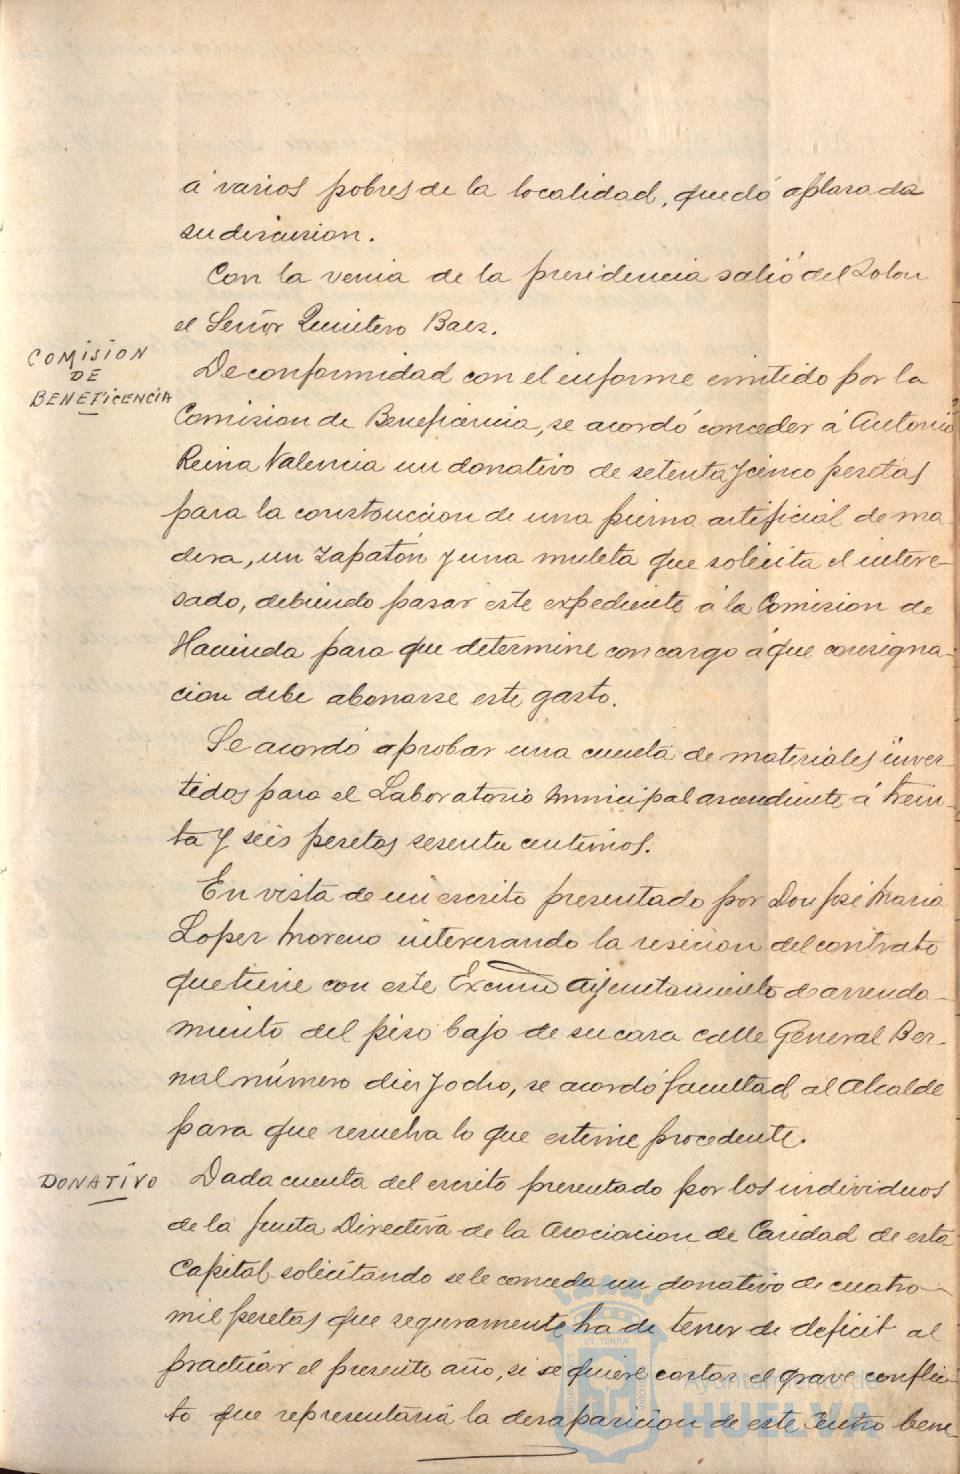 á varios pobres de la localidad, quedó aplasada
su discusion.
Con la venia de la presidencia salió del Salon
el Señor Quintero Baez.
COMISION
DE
BENEFICENCIA
De conformidad con el informe emitido por la
Comision de Beneficencia, se acordó conceder á Antonio
Reina Valencia un donativo de setenta y cinco pesetas
para la construccion de una pierna artificial de ma-
dera, un zapatón y una muleta que solicita el intere-
sado, debiendo pasar este expediente á la Comision de
Hacienda para que determine con cargo á que consigna-
cion debe abonarse este gasto.
Se acordó aprobar una cuenta de materiales inver-
tidos para el Laboratorio Municipal ascendiente á trein-
ta y seis pesetas sesenta centimos.
En vista de un escrito presentado por Don José Maria
Lopez Moreno interesando la resicion del contrato
que tiene con este Excmo Ayuntamiento de arrenda-
miento del piso bajo de su casa calle General Ber-
nal número diez y ocho, se acordó facultad al Alcalde
para que resuelva lo que estime procedente.
DONATIVO
Dada cuenta del escrito presentado por los individuos
de la Junta Directiva de la Asociacion de Caridad de esta
Capital solicitando se le conceda un donativo de cuatro
mil pesetas que seguramente ha de tener de deficit al
practicar el presente año, si se quiere cortar el grave conflic-
to que representaria la desaparicion de este Centro bene-
Ayuntamiento de
HUELVA